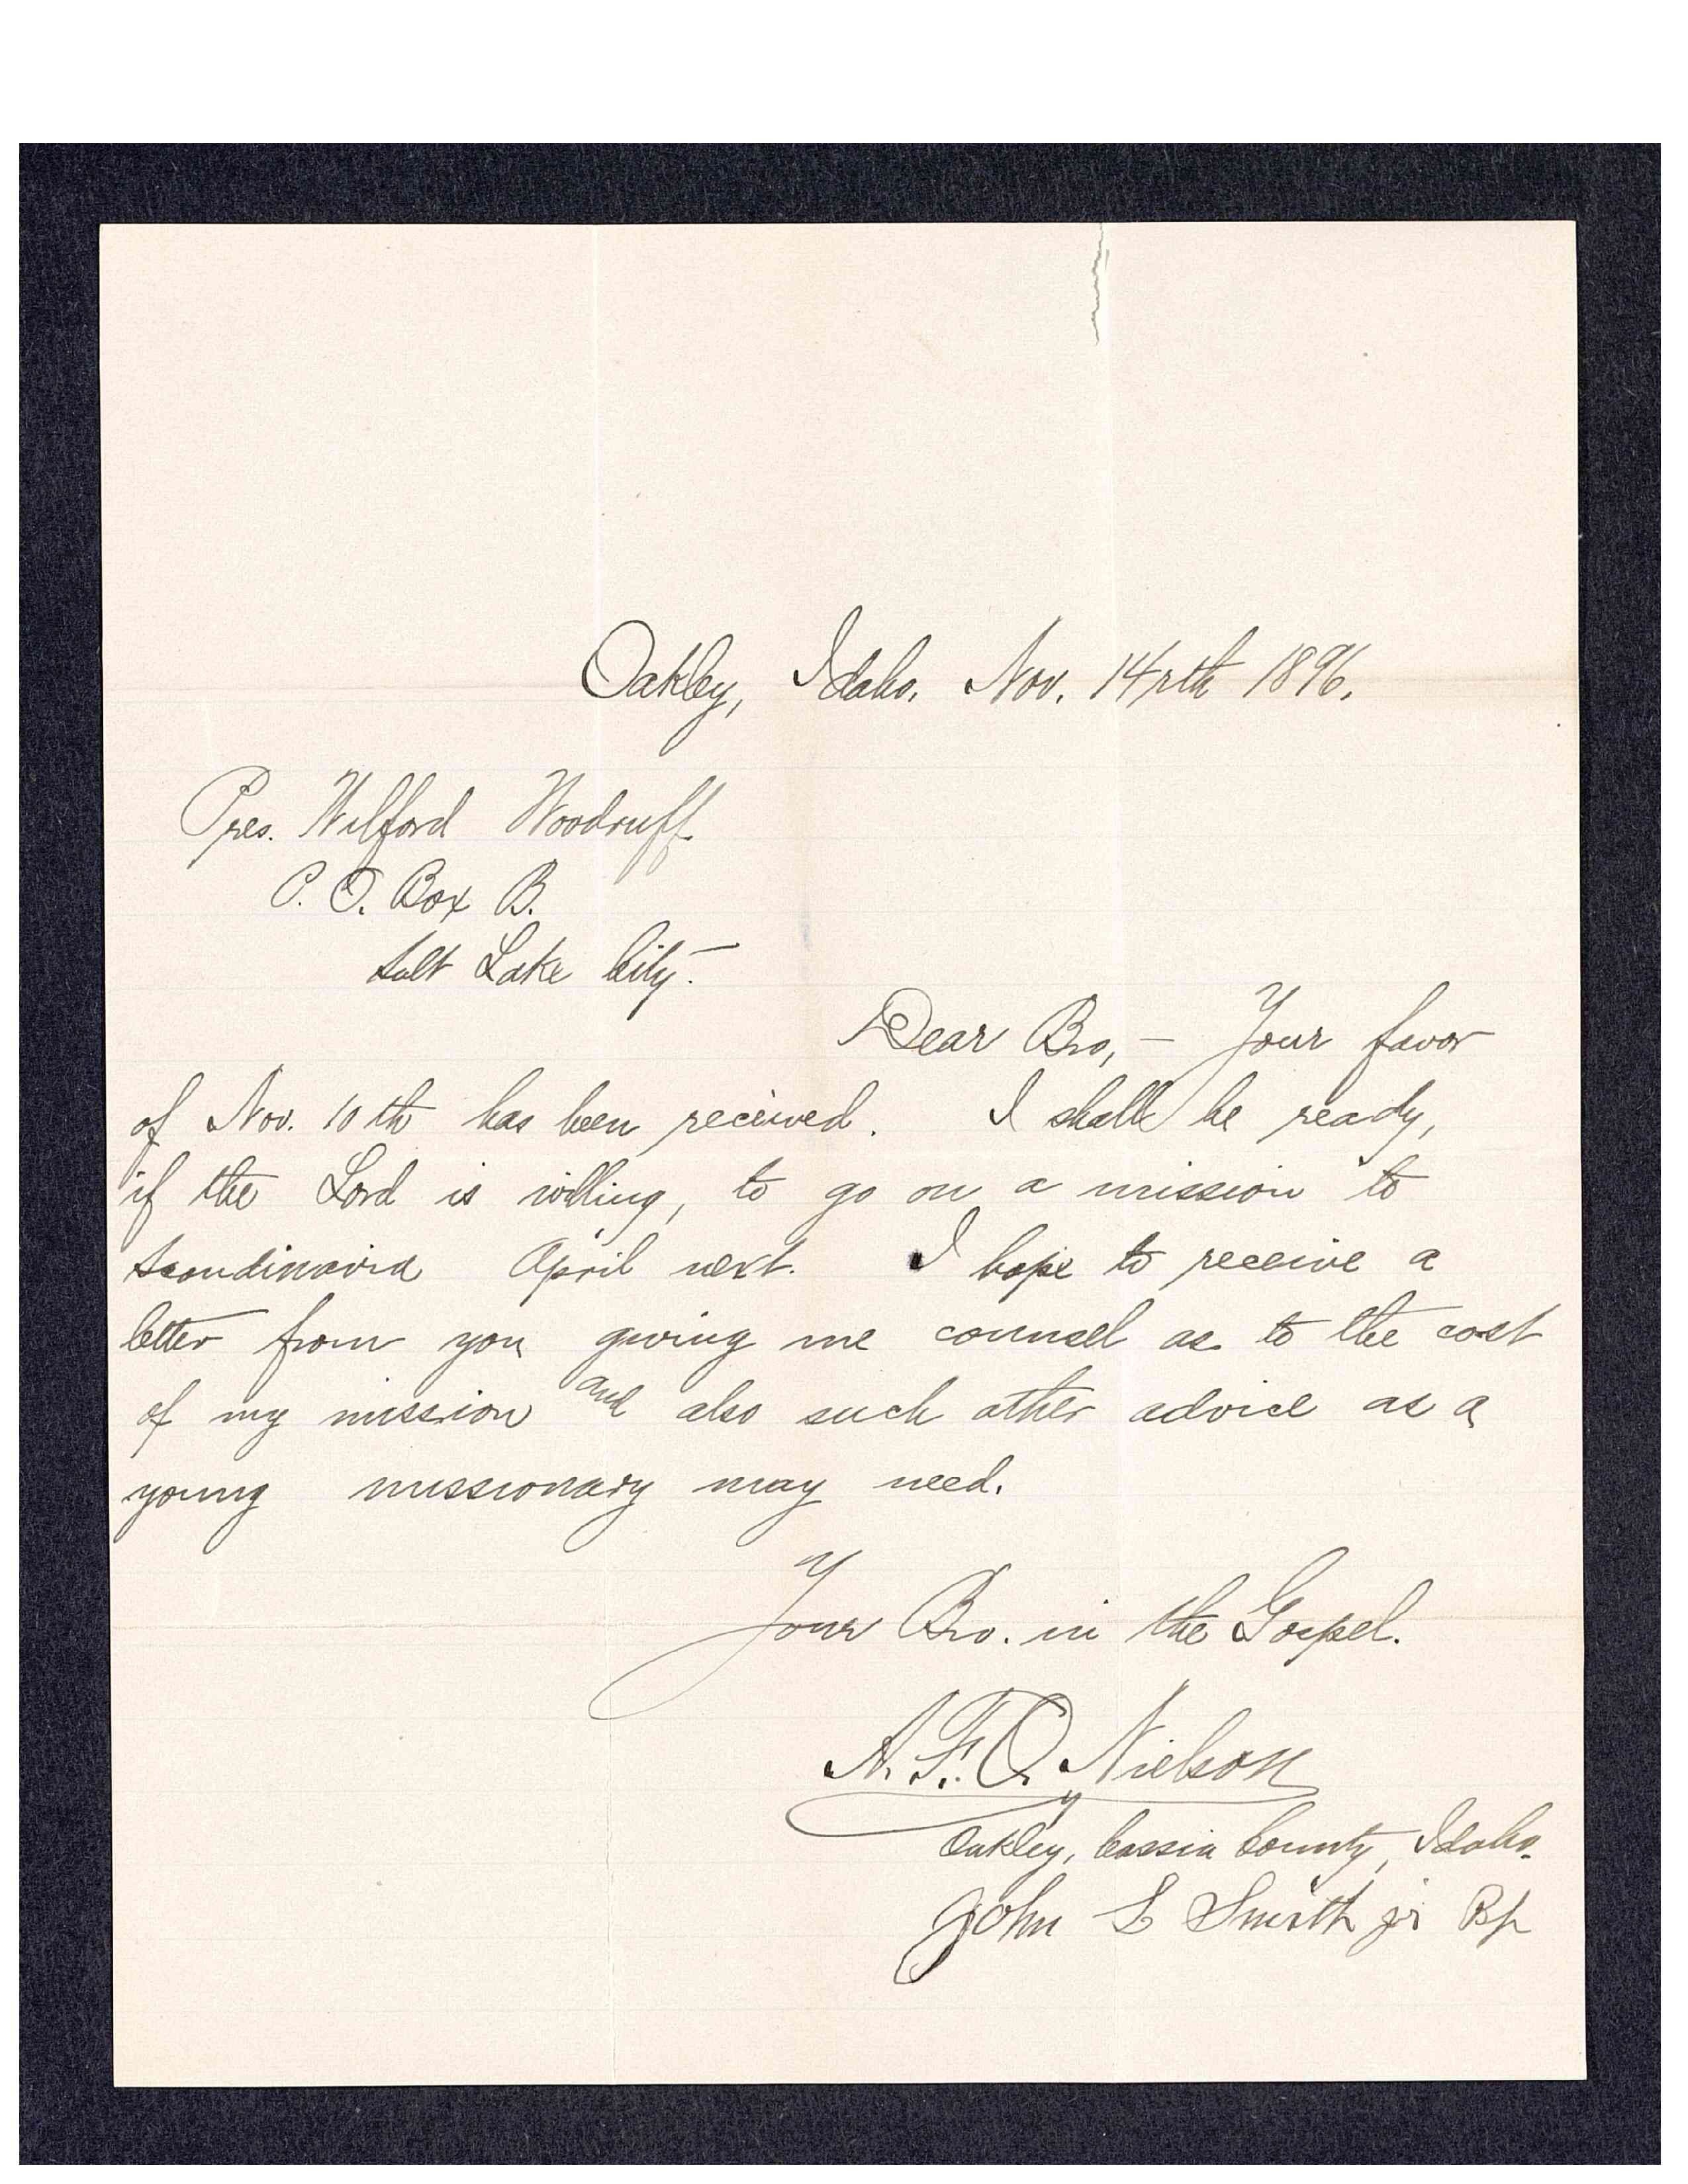 Oakley, Idaho. Nov. 14th 1896.
Pres. Wilford Woodruff
P. O. Box B.
Salt Lake City.
Dear Bro,— Your favor
of Nov. 10th has been received. I shall be ready,
if the Lord is willing, to go on a mission to
Scandinavia April next. I hope to receive a
letter from you giving me counsel as to the cost
of my mission and also such other advice as a
young missionary may need.
Your Bro. in the Gospel.
A. F. O. Nielson
Oakley, Cassia County, Idaho.
John L Smith jr Bp